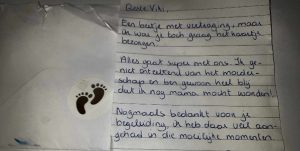 Beste Viki,
Een beetje met vertraging, maar
ik wou je toch graag het kaartje
bezorgen.
Alles gaat super met ons. Ik ge-
niet ontzettend van het moeder-
schap en ben gewoon heel blij
dat ik nog mama mocht worden!
Nogmaals bedankt voor je
begeleiding, ik heb daar veel aan
gehad in die moeilijke momenten.